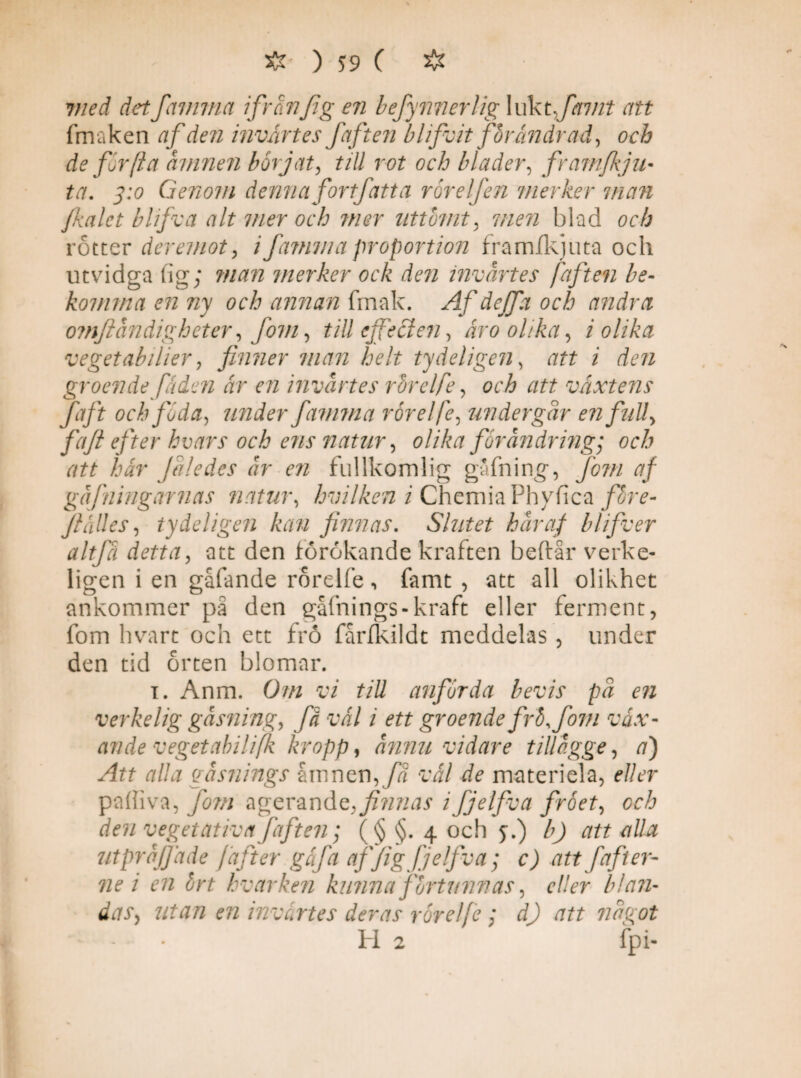 ☼ ) 59 ( ☼
med det samma ifrån sig en besynnerlig lukt, samt att
smaken af den invårtes saften blifvit förändrad, och
de första ämnen börjat, till rot och blader, framskju-
ta. 3:o Genom denna fortsatta rörelsen merker man
skalet blifva alt mer och mer uttömt, men blad och
rötter deremot, i samma proportion framskjuta och
utvidga sig; man merker ock den invärtes saften be-
komma en ny och annan smak. Af dessa och andra
omständigheter, som, till effecten, äro olika, i olika
vegetabilier, finner man helt tydeligen, att i den
groende säden är en invärtes rörelse, och att växtens
saft och föda, under samma rörelse, undergår en full,
fast efter hvars och ens natur, olika förändring; och
att här således är en fullkomlig gäsning, som af
gäsningarnas natur, hvilken i Chemia Physica före-
ställes, tydeligen kan finnas. Slutet häraf blifver
altså detta, att den förökande kraften består verke-
ligen i en gäsande rörelse, samt , att all olikhet
ankommer på den gäsnings-kraft eller ferment,
som hvart och ett frö särskildt meddelas , under
den tid örten blomar.
1. Anm. Om vi till anförda bevis på en
verkelig gäsning, så väl i ett groende frö, som väx-
ande vegetabilisk kropp, ännu vidare tillägge, a)
Att alla gäsnings ämnen, så väl de materiela, eller
passiva, som agerande, finnas i sjelfva fröet, och
den vegetativa saften; ( § §. 4 och 5.) b) att alla
utprässade safter gäsa af sig sjelfva; c) att safter-
ne i en ört hvarken kunna förtunnas, eller blan-
das, utan en invärtes deras rörelse; d) att något
H 2 spi-